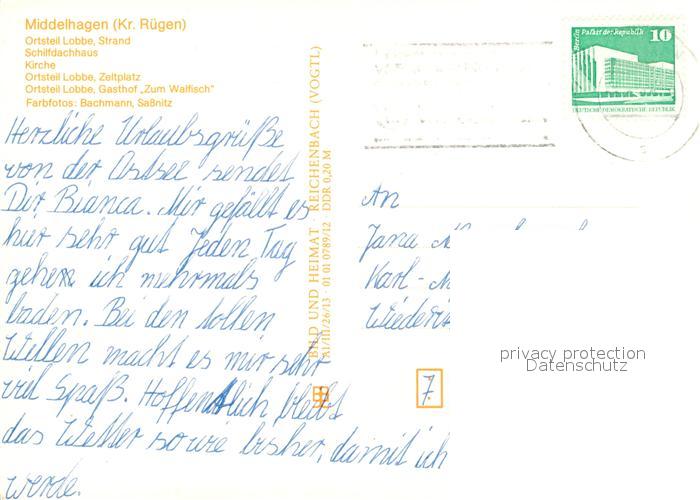 Middelhagen (Kr. Rügen)
Ortsteil Lobbe, Strand
Schilfdachhaus
Kirche
Ortsteil Lobbe, Zeltplatz
Ortsteil Lobbe, Gasthof „Zum Walfisch"
Farbfotos: Bachmann, Saßnitz
Herzliche Urlaubsgrüße
von der Ostsee sendet
Dir Bianca. Mir gefällt es
hier sehr gut Jeden Tag
gehen ich mehrmals
baden. Bei den tollen
Wellen macht es mir sehr
viel Spaß. Hoffentlich bleibt
das Wetter so wie bisher, damit ich
werde.
BILD UND HEIMAT REICHENBACH (VOGTL)
A1/III/26/13 01 01 0789/12 DDR 0,20 M
Berlin Palast der Republik
10
DEUTSCHE DEMOKRATISCHE REPUBLIK
An
Jana
Karl-
7
privacy protection
Datenschutz